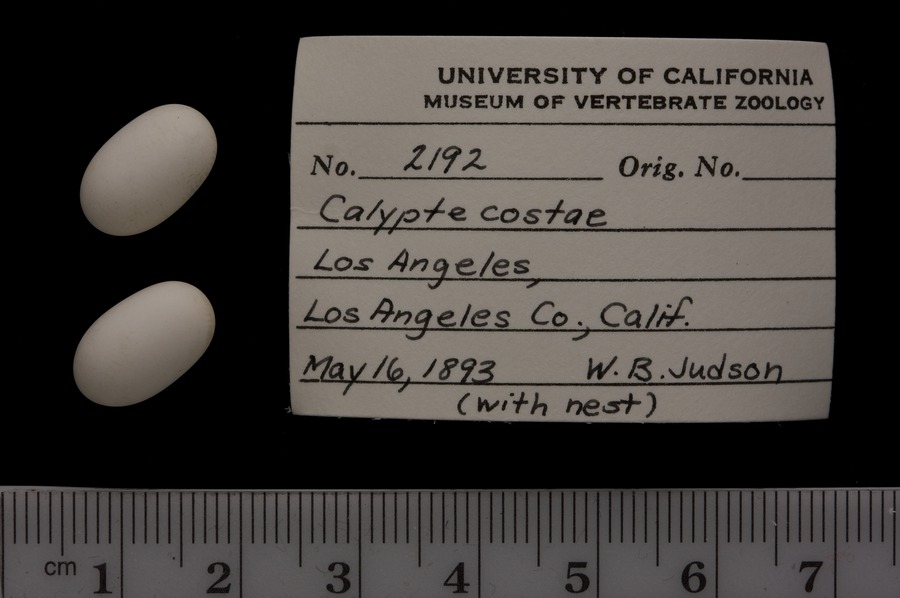 UNIVERSITY OF CALIFORNIA
MUSEUM OF VERTEBRATE ZOOLOGY
No. 2192 Orig. No.
Calypte costae
Los Angeles,
Los Angeles Co., Calif.
May 16, 1893 W. B. Judson
(with nest)
cm 1 2 3 4 5 6 7